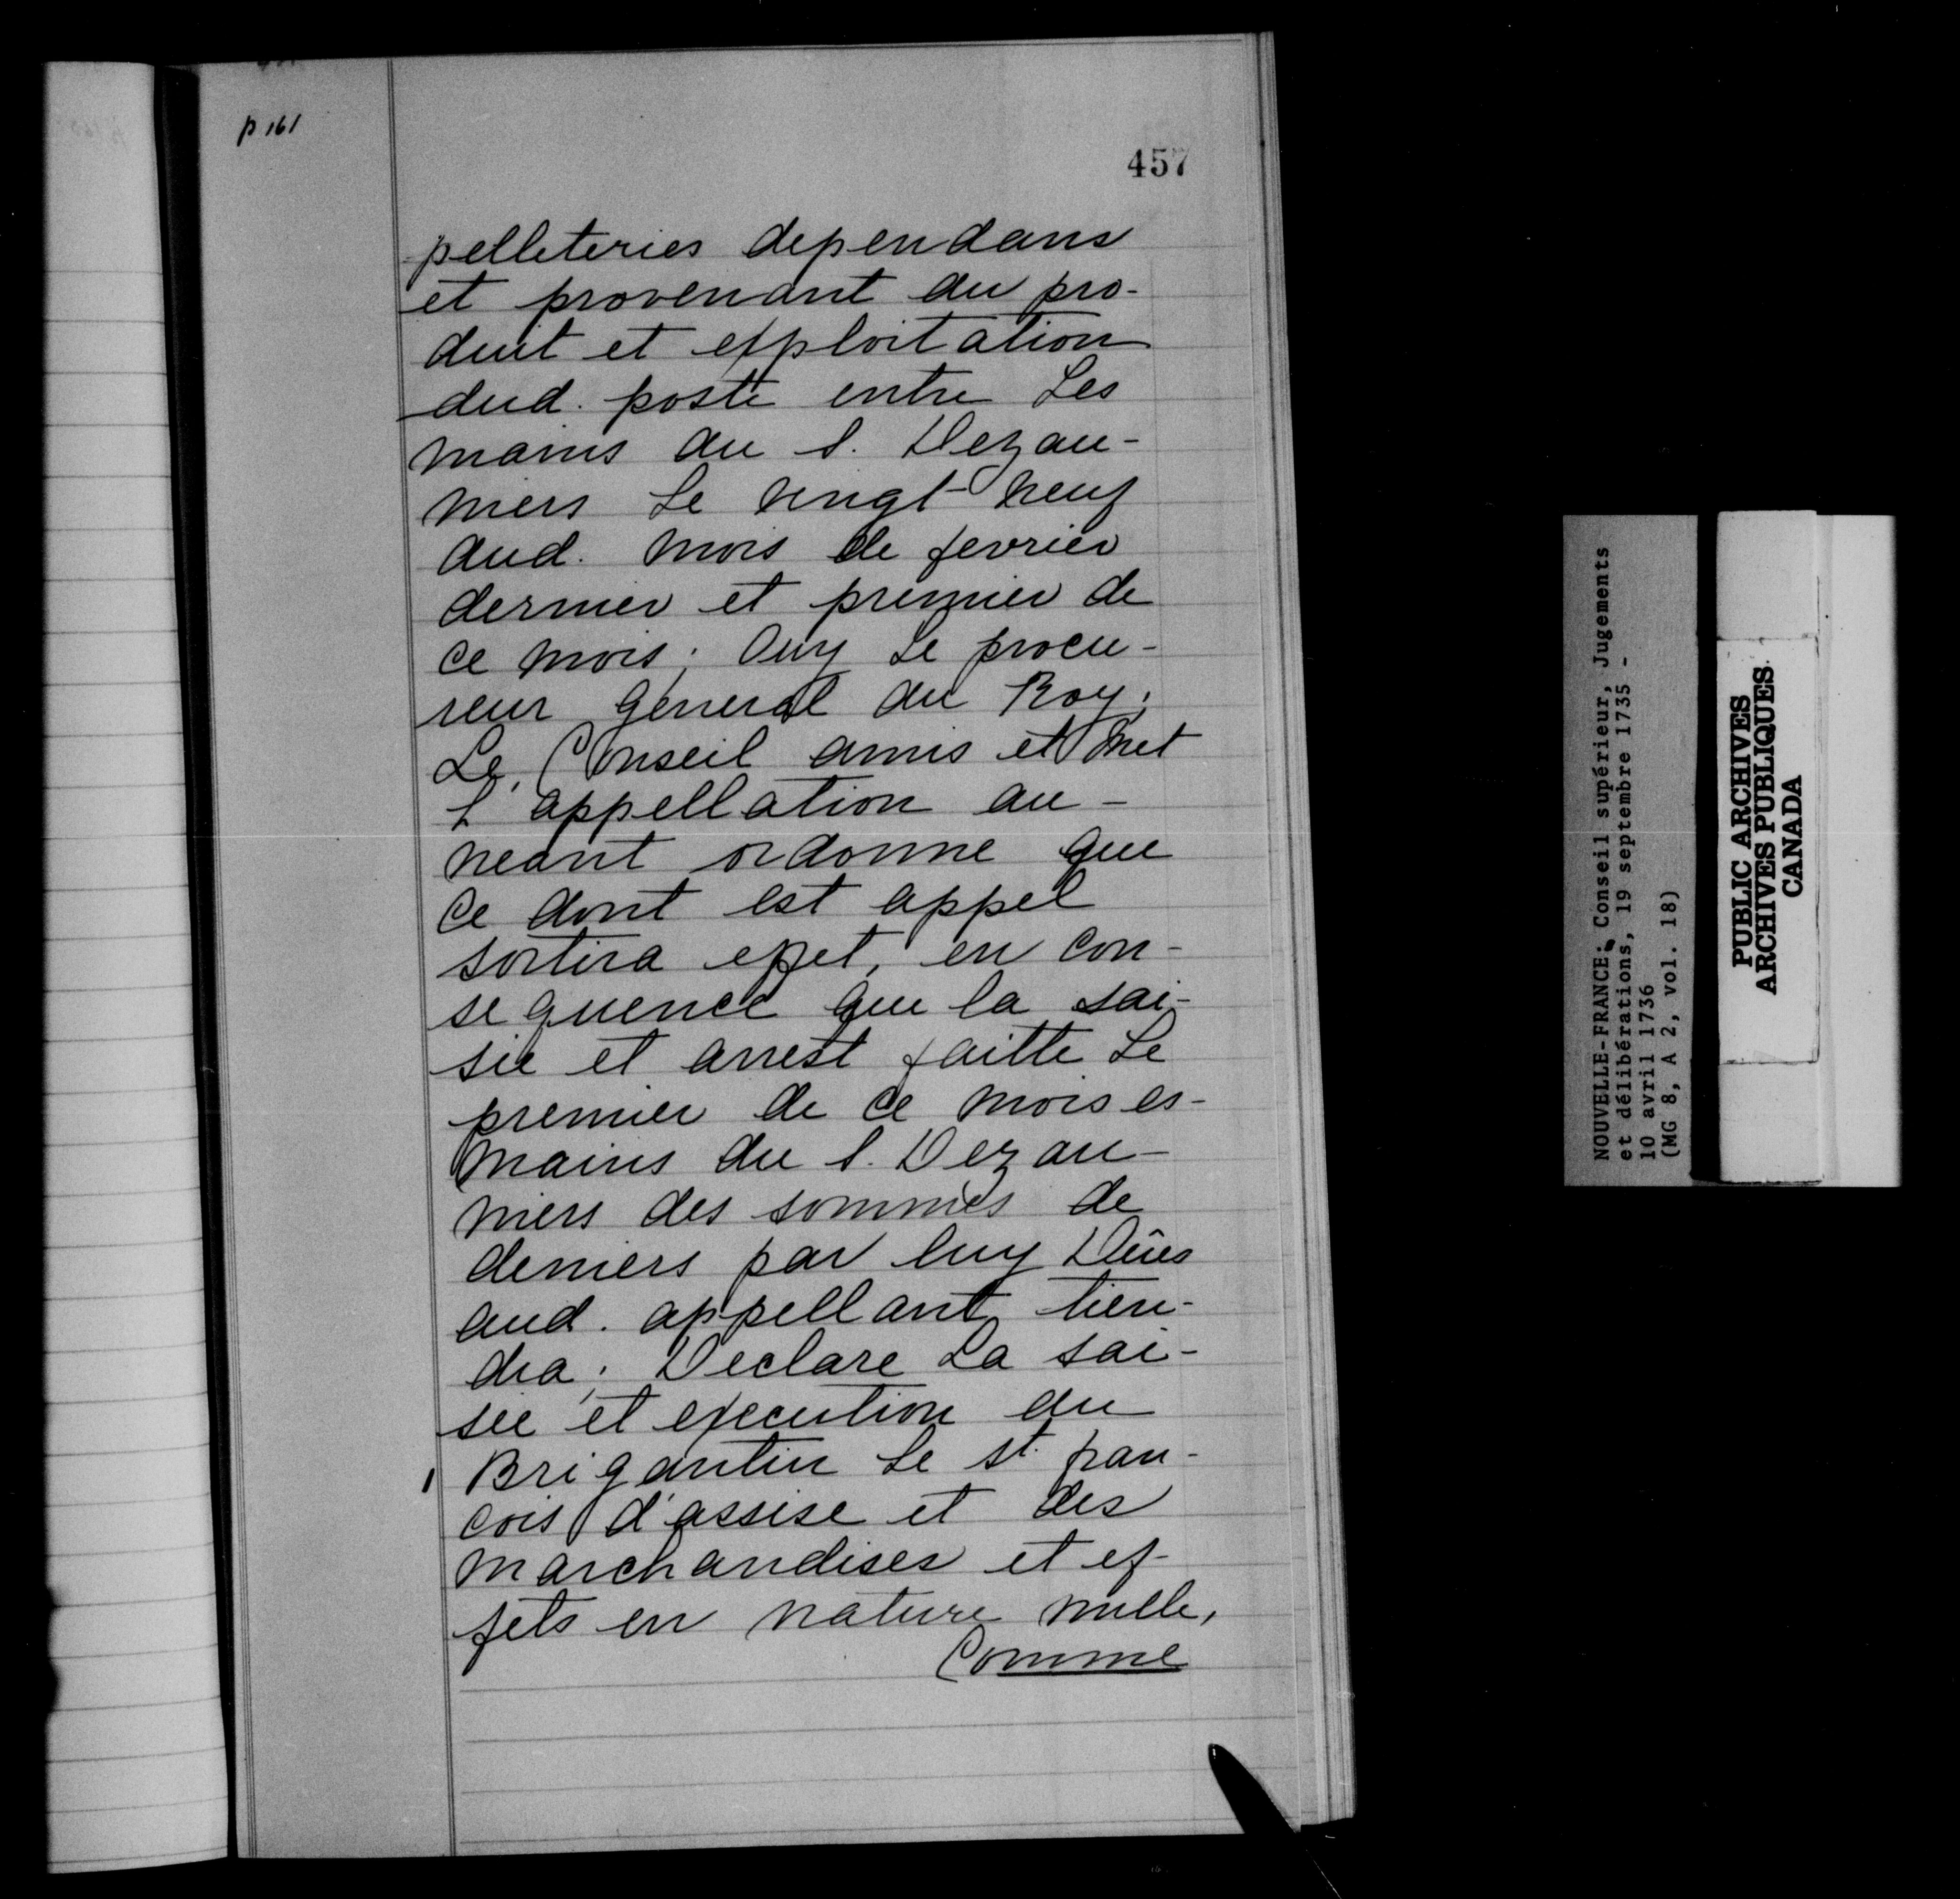 p 161
457
pelleteries dependans
et provenant du pro-
duit et exploitation
dud. poste entre Les
mains du s. Dezau-
niers Le vingt-neuf
dud. mois de fevrier
dernier et premier de
ce mois; Ouy Le procu-
reur general du Roy;
Le Conseil amis et met
L'appellation au-
neant ordonne que
ce dont est appel
sortira effet, en con-
sequence que la sai-
sie et arrest faitte Le
premier de ce mois es-
mains du s. Dezau-
niers des sommes de
deniers par luy Dûes
aud. appellant tien-
dra; Declare La sai-
sie et execution du
Brigantin Le st. fran-
cois d'assise et des
marchandises et ef-
fets en nature nulle,
Comme
NOUVELLE-FRANCE: Conseil supérieur, Jugements
et délibérations, 19 septembre 1735 -
10 avril 1736
(MG 8, A 2, vol. 18)
PUBLIC ARCHIVES
ARCHIVES PUBLIQUES
CANADA